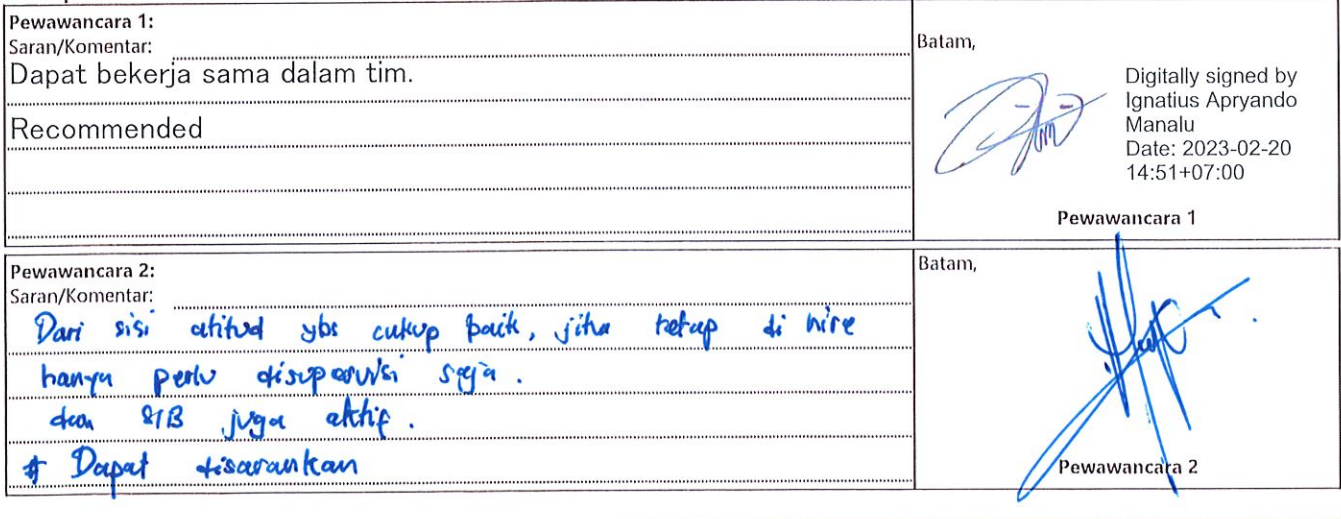 Pewawancara 1:
Saran/Komentar:
Dapat bekerja sama dalam tim.
Recommended
Batam,
Digitally signed by
Ignatius Apryando
Manalu
Date: 2023-02-20
14:51+07:00
Pewawancara 1
Pewawancara 2:
Saran/Komentar:
Dari sisi atitud ybs cukup baik, jika tetap di hire
hanya perlu disupervisi saja.
dan STB juga aktif.
# Dapat disarankan
Batam,
Pewawancara 2